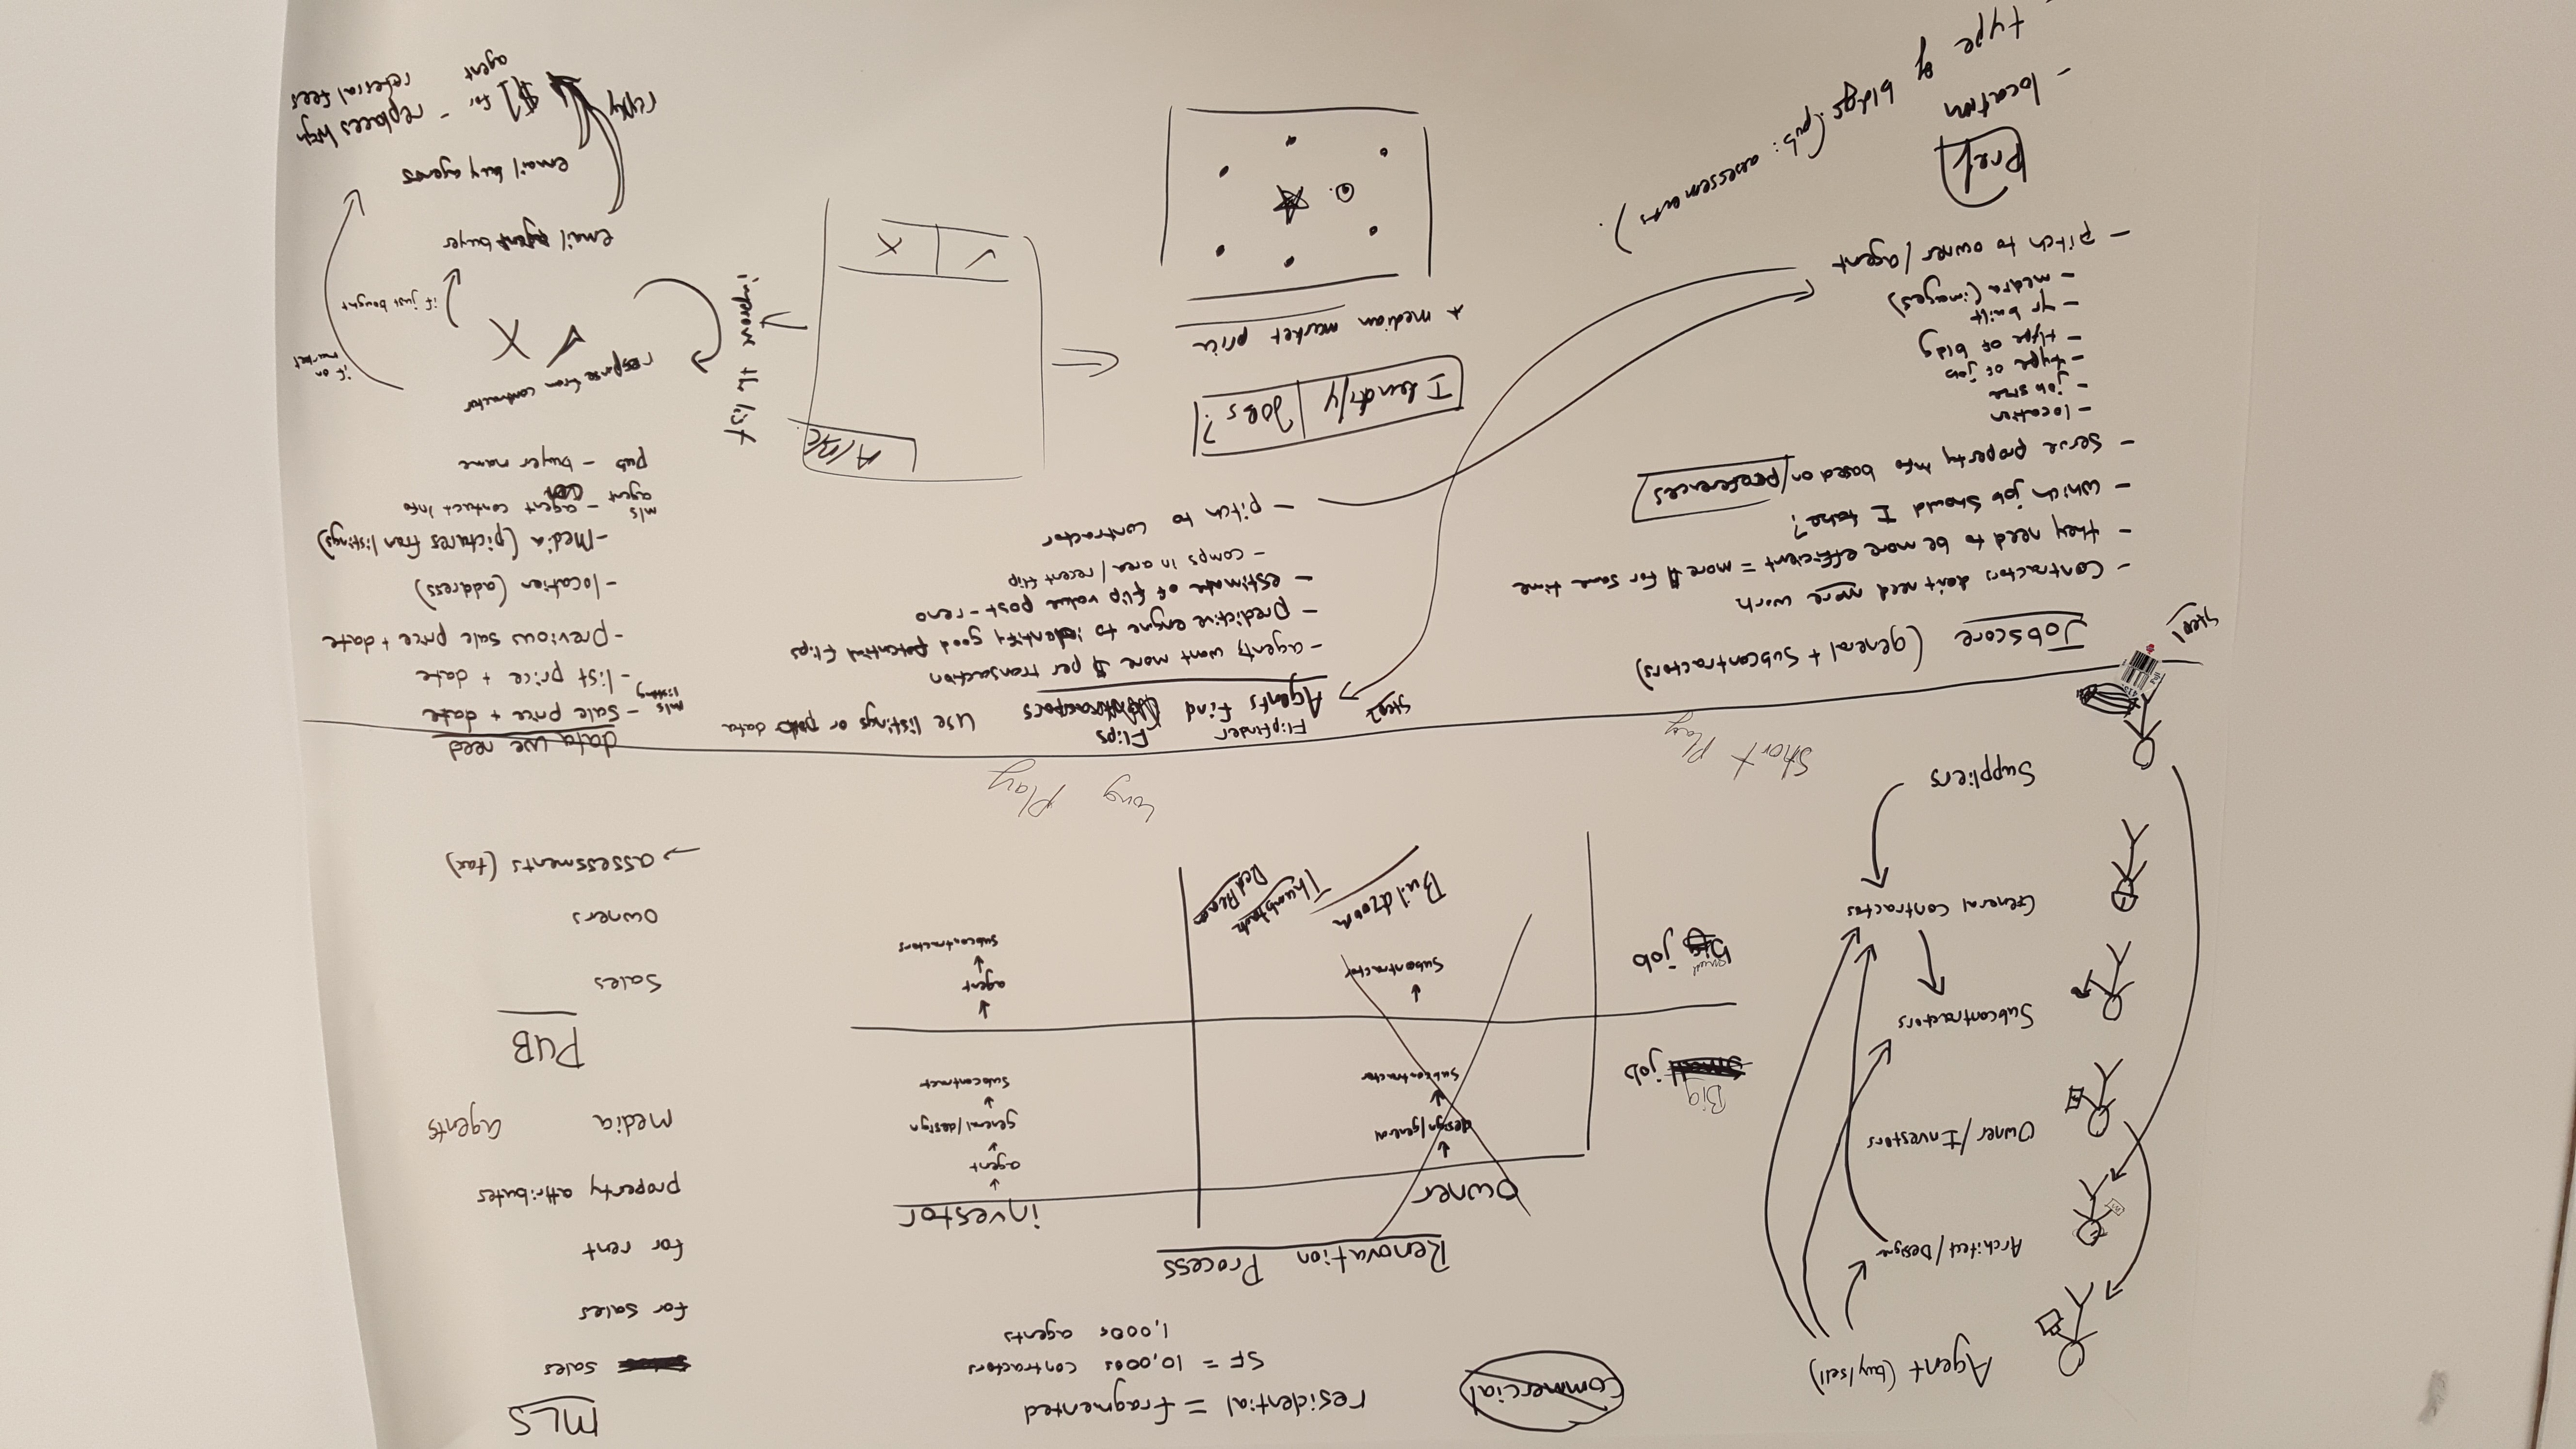 Agent (buy/sell)
Architect/Designer
Owner/Investors
Subcontractors
General Contractos
Suppliers
Commercial
residential = fragmented
SF = 10,000s contractors
1,000s agents
Renovation Process
owner
investor
Big job
design/general
Subcontractor
agent
general/design
Subcontract
small
big job
Subcontractor
agent
Subcontractors
Buildzoom
Thumbtack
MLS
sales
for sales
for rent
property attributes
media agents
PUB
Sales
owners
→ assessments (tax)
Short Play
Long Play
Step 1
Jobscore (general + Subcontractors)
- Contractors don't need more work
- they need to be more efficient = more $ for same time
- which job should I take?
- Serve property info based on preferences
- location
- job size
- type of job
- type of bldg
- yr built
- media (images)
- pitch to owner/agent
Pref
- location
type of bldgs. (pub: assessements).
Step 2
Flipfinder Flips
Agents find use listings or pub data
- agents want more $ per transaction
- predictive engine to identify good potential flips
- estimate of flip value post-reno
- comps in area/recent flip
- pitch to contractor
Identify Jobs?
* median market price
A/B/C
✓ X
improve the list
data we need
mls listing - sale price + date
- list price + date
- previous sale price + date
- location (address)
- Media (pictures from listings)
mls agent - agent contact info
pub - buyer name
response from contractor
✓ X
if on market
if just bought
email buyer
email buy agents
reply
$1 for agent - replaces high referral fees